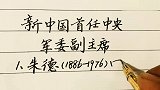 新中国首任中央
军委副主席
1.朱德(1886-1976)